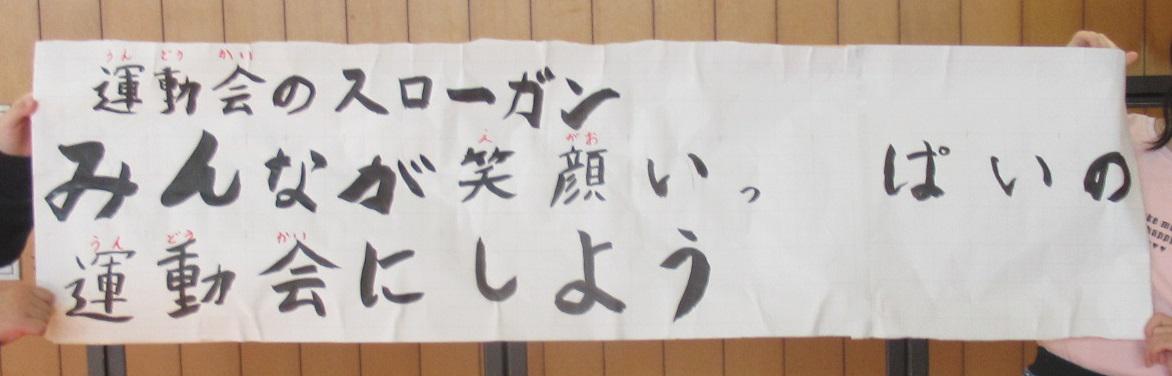 運動会のスローガン
みんなが笑顔いっぱいの
運動会にしよう